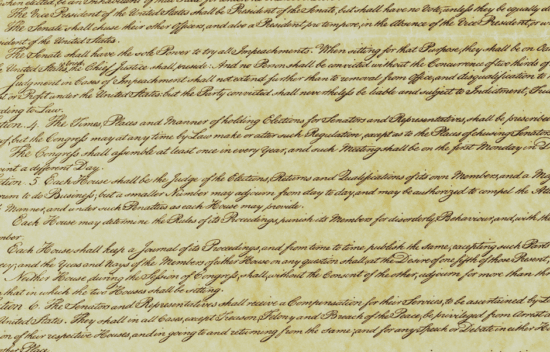 The Vice President of the United States shall be President of the Senate, but shall have no Vote, unless they be equally di
The Senate shall chuse their other Officers, and also a President pro tempore, in the Absence of the Vice President, or
sident of the United States.
The Senate shall have the sole Power to try all Impeachments. When sitting for that Purpose, they shall be on Oa
United States, the Chief Justice shall preside: And no Person shall be convicted without the Concurrence of two thirds of
Judgment in Cases of Impeachment shall not extend further than to removal from Office, and disqualification to
t or Profit under the United States: but the Party convicted shall nevertheless be liable and subject to Indictment, Tria
ding to Law.
tion. 4. The Times, Places and Manner of holding Elections for Senators and Representatives, shall be prescribe
of; but the Congress may at any time by Law make or alter such Regulations, except as to the Places of chusing Senators.
The Congress shall assemble at least once in every Year, and such Meeting shall be on the first Monday in D
int a different Day.
tion. 5. Each House shall be the Judge of the Elections, Returns and Qualifications of its own Members, and a Maj
rum to do Business; but a smaller Number may adjourn from day to day, and may be authorized to compel the At
h Manner, and under such Penalties as each House may provide.
Each House may determine the Rules of its Proceedings, punish its Members for disorderly Behaviour, and, with th
mber.
Each House shall keep a Journal of its Proceedings, and from time to time publish the same, excepting such Part
ecy; and the Yeas and Nays of the Members of either House on any question shall, at the Desire of one fifth of those Present,
Neither House, during the Session of Congress, shall, without the Consent of the other, adjourn for more than thr
that in which the two Houses shall be sitting.
tion. 6. The Senators and Representatives shall receive a Compensation for their Services, to be ascertained by L
United States. They shall in all Cases, except Treason, Felony and Breach of the Peace, be privileged from Arrest d
ion of their respective Houses, and in going to and returning from the same; and for any Speech or Debate in either Ho
ther Place.